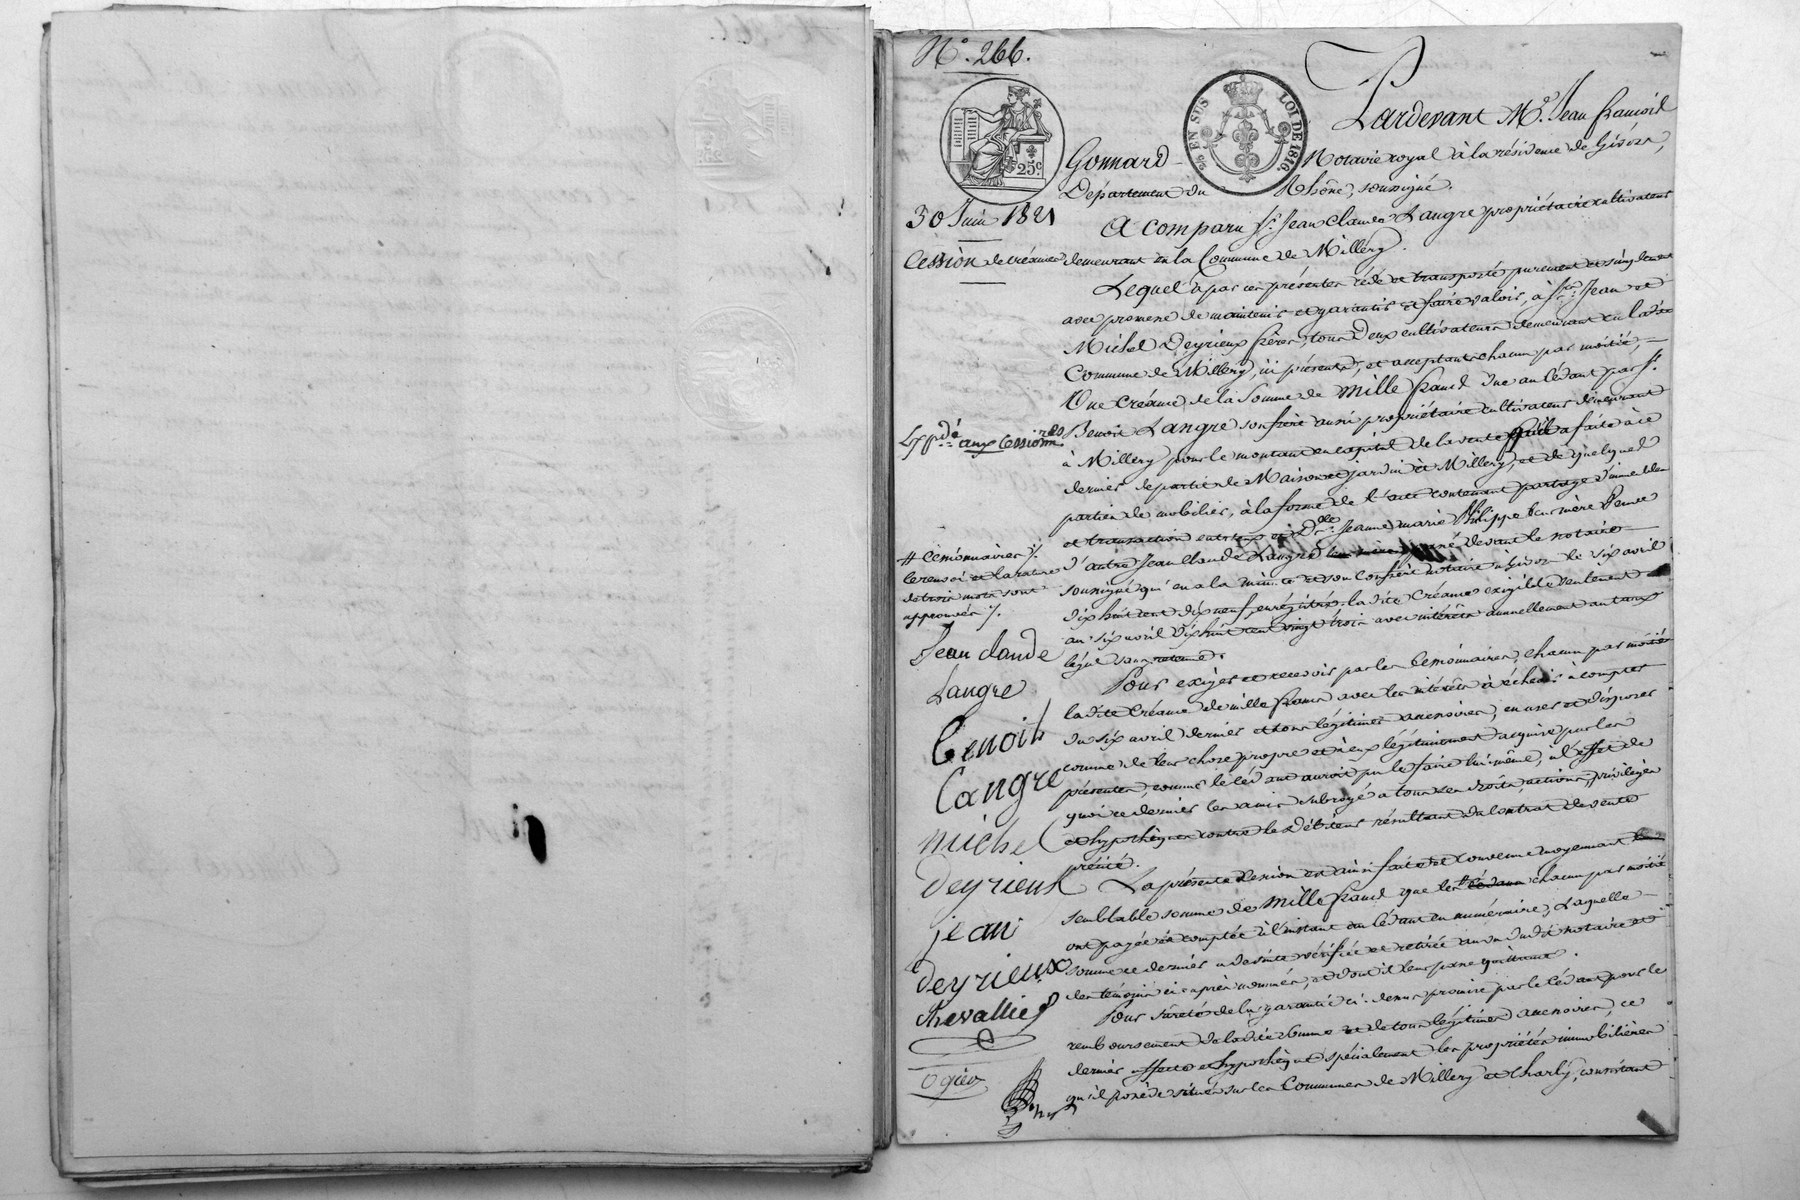 N.° 266.
25.c
2/10 EN SUS
LOI DE 1816.
30 Juin 1821
Cession de créances
Exp.dé aux Cessionn.res
# cessionnaires ./.
le renvoi et la rature
de trois mots sont
approuvés ./.
Jean Claude
Langre
benoit
Langre
michel
Deyrieux
jean
Deyrieux
Chevallier
Ogier
Pardevant M.e Jean François
Gonnard Notaire royal à la résidence de Givors,
Département du Rhône, soussigné.
A comparu S.r Jean Claude Langre propriétaire cultivateur
demeurant en la Commune de Millery.
Lequel a par ces présentes cédé et transporté purement et simplement
avec promesse de maintenir et garantir et faire valoir, à S.rs Jean et
Michel Deyrieux frères, tous deux cultivateurs demeurant en la dite
Commune de Millery, ici présents, et acceptants chacun par moitié,
Une Créance de la Somme de Mille francs due au Cédant par S.r
Benoit Langre son frère aussi propriétaire cultivateur demeurant
à Millery pour le montant en capital de la vente qu'il a faite à ce
dernier de partie de Maison et jardin à Millery, et de quelques
parties de mobilier, à la forme de l'acte contenant partage d'immeubles
et transaction entr'eux et D.lle Jeanne marie Philippe leur mère Veuve
d'autre Jean Claude Langre passé devant le notaire
soussigné qui en a la minute et son Confrère notaire à Givors le six avril
dix huit cent dix neuf, enrégistré. la dite Créance exigible seulement
au six avril dix huit cent vingt trois avec intérêts annuellement au taux
légal sans retenue.
Pour exiger et recevoir par les Cessionnaires, chacun par moitié
la dite Créance de mille francs avec les intérêts à échoir à compter
du six avril dernier et tous légitimes accessoires, en user et disposer
comme de leur chose propre et à eux légitimement acquise par les
présentes, comme le Cédant auroit pu le faire lui-même, à l'effet de
quoi ce dernier les a mis et subrogé a tous ses droits, actions, privilèges
et hypothèques contre le Débiteur résultant du Contrat de vente
précité.
La présente Cession est ainsi faite et convenue moyennant
semblable somme de Mille francs que les # chacun par moitié
ont payée et comptée à l'instant au Cédant en numéraire, Laquelle
somme ce dernier a de suite vérifiée et retirée au vu du dit notaire et
des témoins ci après nommés, et dont il leur passe quittance.
Pour sûreté de la garantie ci-dessus promise par le Cédant pour le
remboursement de la dite Somme et de tous légitimes accessoires, ce
dernier affecte et hypothèque spécialement les propriétés immobilières
qu'il possède situés sur les Communes de Millery et Charly, consistant